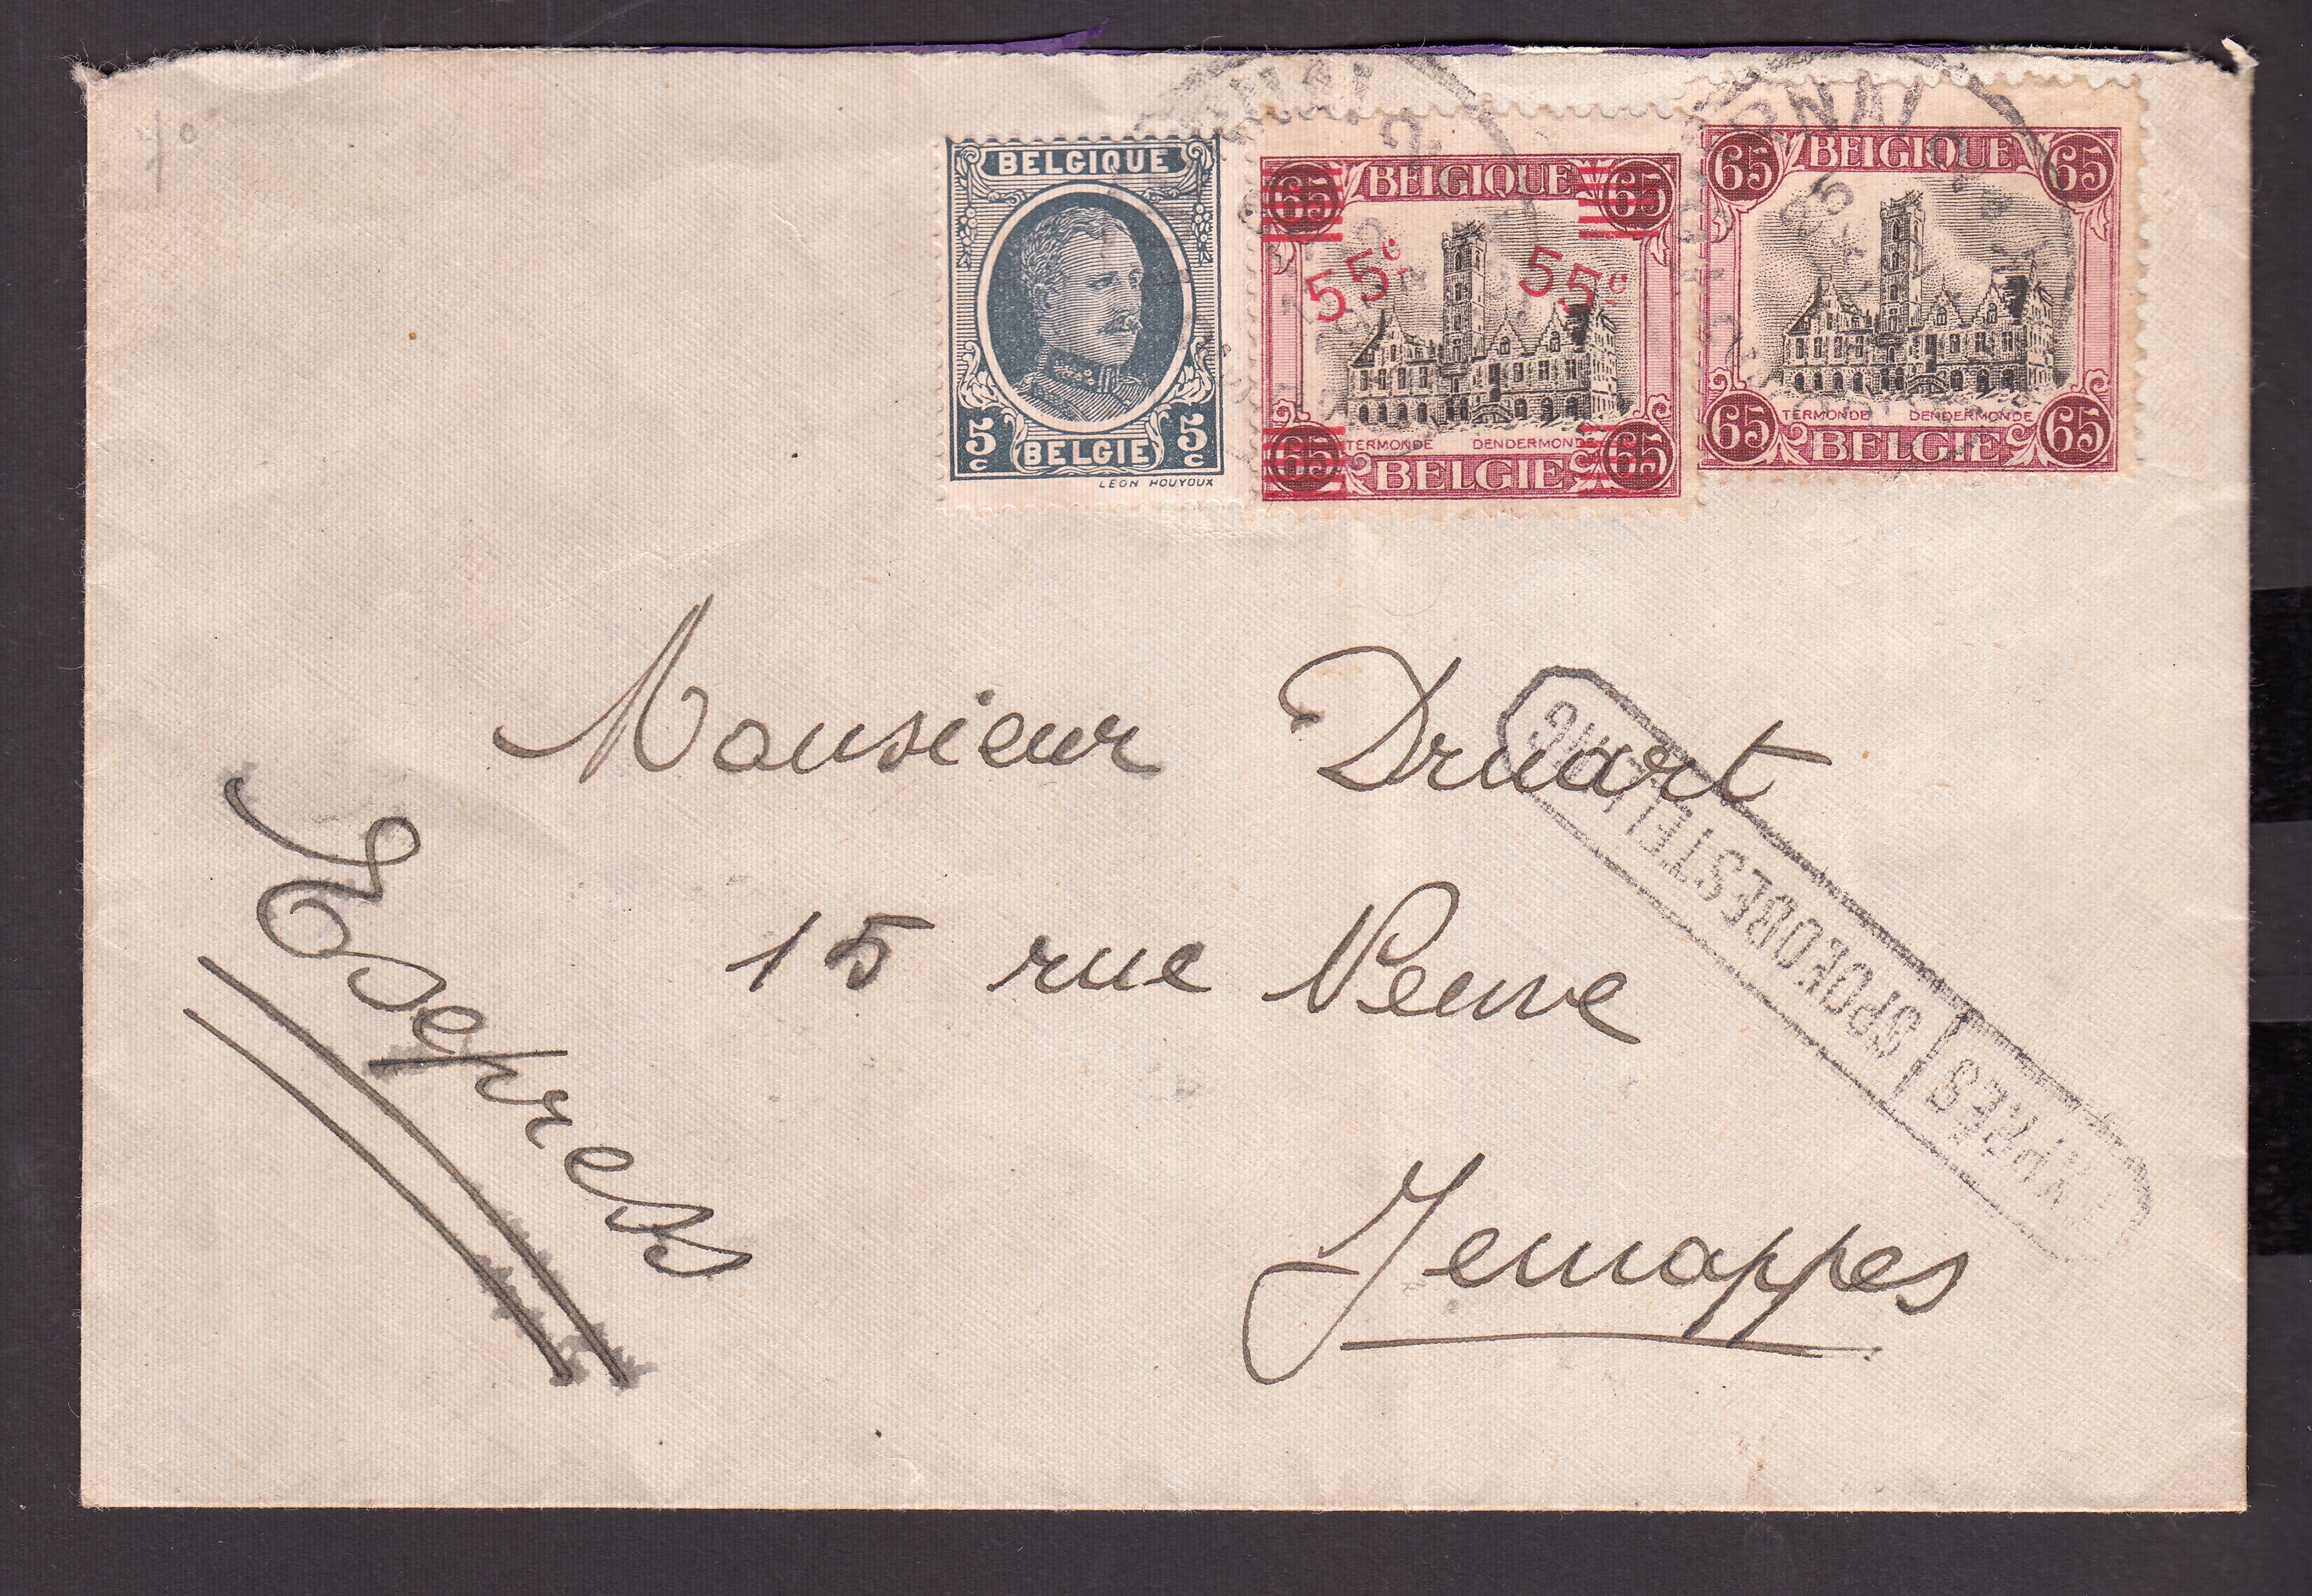 BELGIQUE
5c 5c
BELGIE
LEON HOUYOUX
65 BELGIQUE 65
55c 55c
TERMONDE DENDERMONDE
65 BELGIE 65
65 BELGIQUE 65
TERMONDE DENDERMONDE
65 BELGIE 65
Monsieur Druart
15 rue Neuve
Jemappes
Exprès
SPOEDBESTELLING